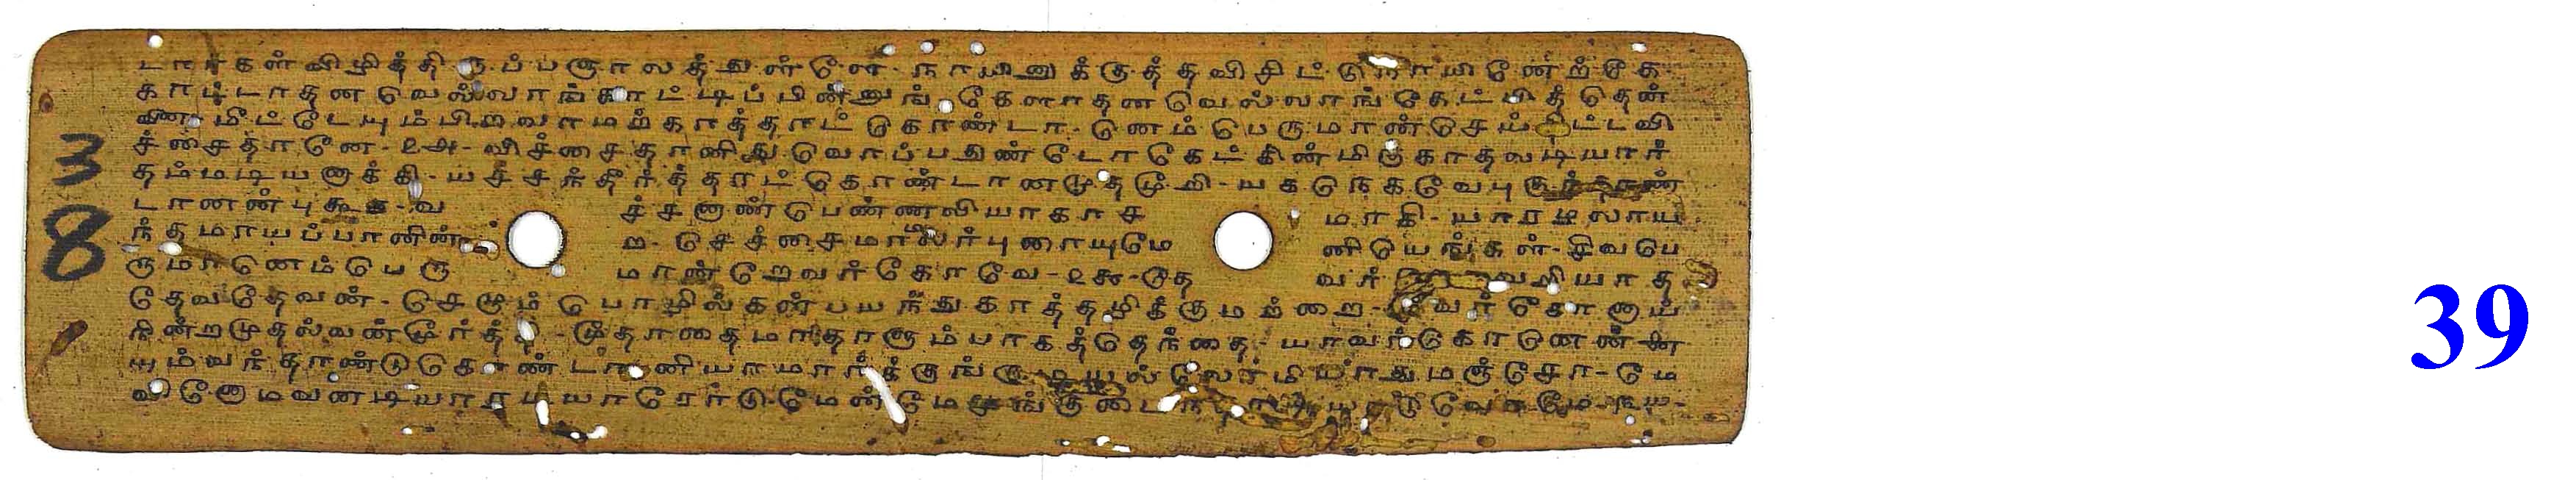 டார்கள்விழித்திருப்பஞாலத்துள்ளே-நாயினுக்குத்தவிசிட்டுநாயினேற்கே
காட்டாதனவெல்லாங்காட்டிப்பின்னுங்கேளாதனவெல்லாங்கேட்பித்தென்
னைமீட்டேயும்பிறவாமற்காத்தாட்கொண்டா-னெம்பெருமான்செய்திட்டவி
ச்சைதானே-உஅ-விச்சைதானிதுவொப்பதுண்டோகேட்கின்மிகுகாதலடியார்
தம்மடியனாக்கி-யச்சந்தீர்த்தாட்கொண்டானமுதமூறி-யகநெகவேபுகுந்தாண்
டானன்புகூர-வ ச்சனாண்பெண்ணலியாகாச மாகி-யாரழலாய
ந்தமாயப்பானின் ற-செச்சைமாமலர்புரையுமே னியெங்கள்-சிவபெ
ருமானெம்பெரு மான்றேவர்கோவே-உ௯-தே வர் வறியாத
தேவதேவன்-செழும்பொழில்கள்பயந்துகாத்தழிக்குமற்றை-மூவர்கோனாய்
நின்றமுதல்வன்மூர்த்தி-மூதாதைமாதாளும்பாகத்தெந்தை-யாவர்கோனென்னை
யும்வந்தாண்டுகொண்டானியாமார்க்குங்குடியல்லோமியாதுமஞ்சோ-மே
வினோமவனடியாரடியாரோடுமேன்மே